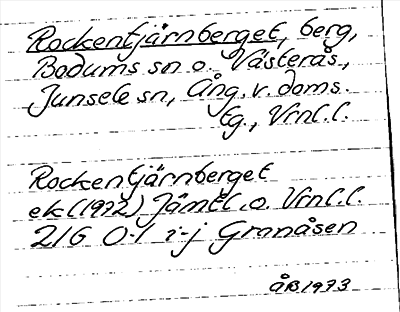 Rockentjärnberget, berg,
Bodums sn o. Västerås,
Junsele sn, Ång. v. doms.
tg., Vrnl. l.
Rockentjärnberget
ek (1972) Jämtl. o. Vrnl. l.
21G 0-1 i-j Granåsen
ÅB 1973